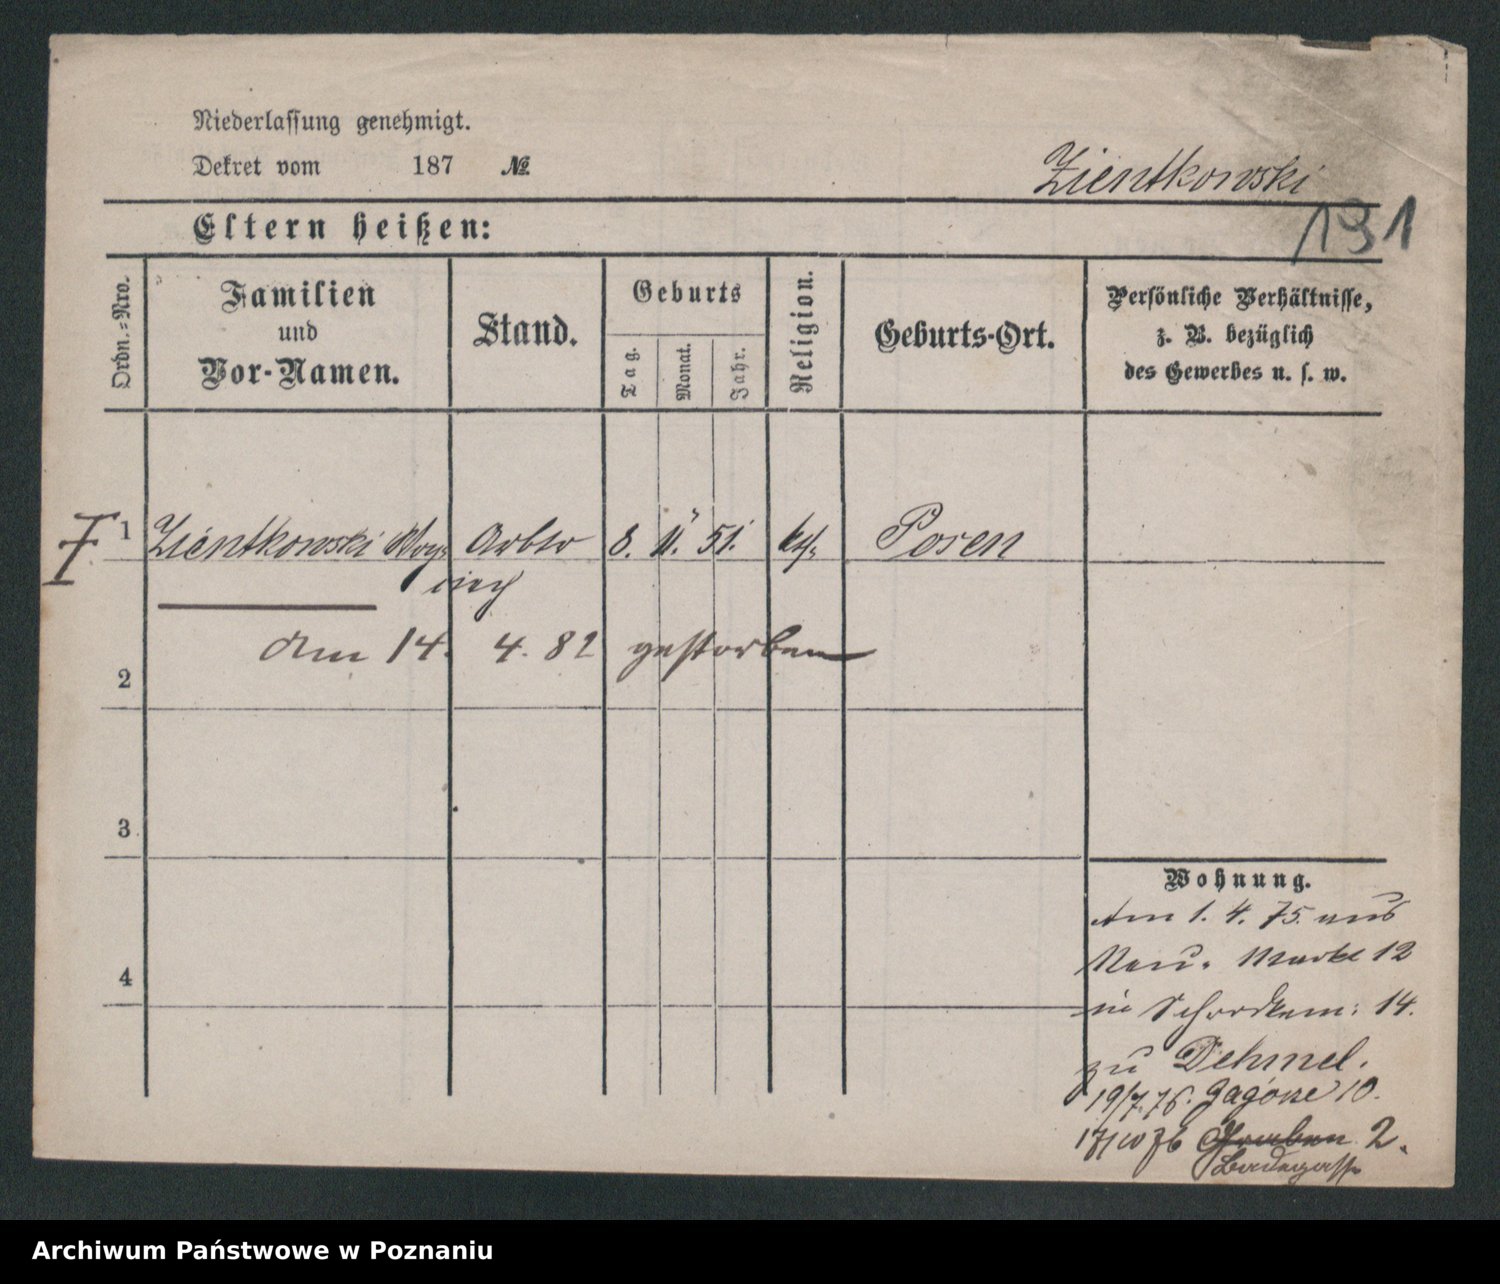 Niederlassung genehmigt.
Dekret vom 187 №
Zientkowski
131
Eltern heißen:
Ordn.-Nro.
Familien
und
Vor-Namen.
Stand.
Geburts
Tag.
Monat.
Jahr.
Religion.
Geburts-Ort.
Persönliche Verhältnisse,
z. B. bezüglich
des Gewerbes u. s. w.
1 Zientkowski Woy- Arbtr 8. 11. 51. kt. Posen
ciech
Am 14. 4. 82 gestorben
2
3
4
Wohnung.
Am 1. 4. 75. aus
Neu. Markt 12
in Schrodkam: 14.
zu Dehmel.
19/7.76. 10.
Graben 2.
Badegasse